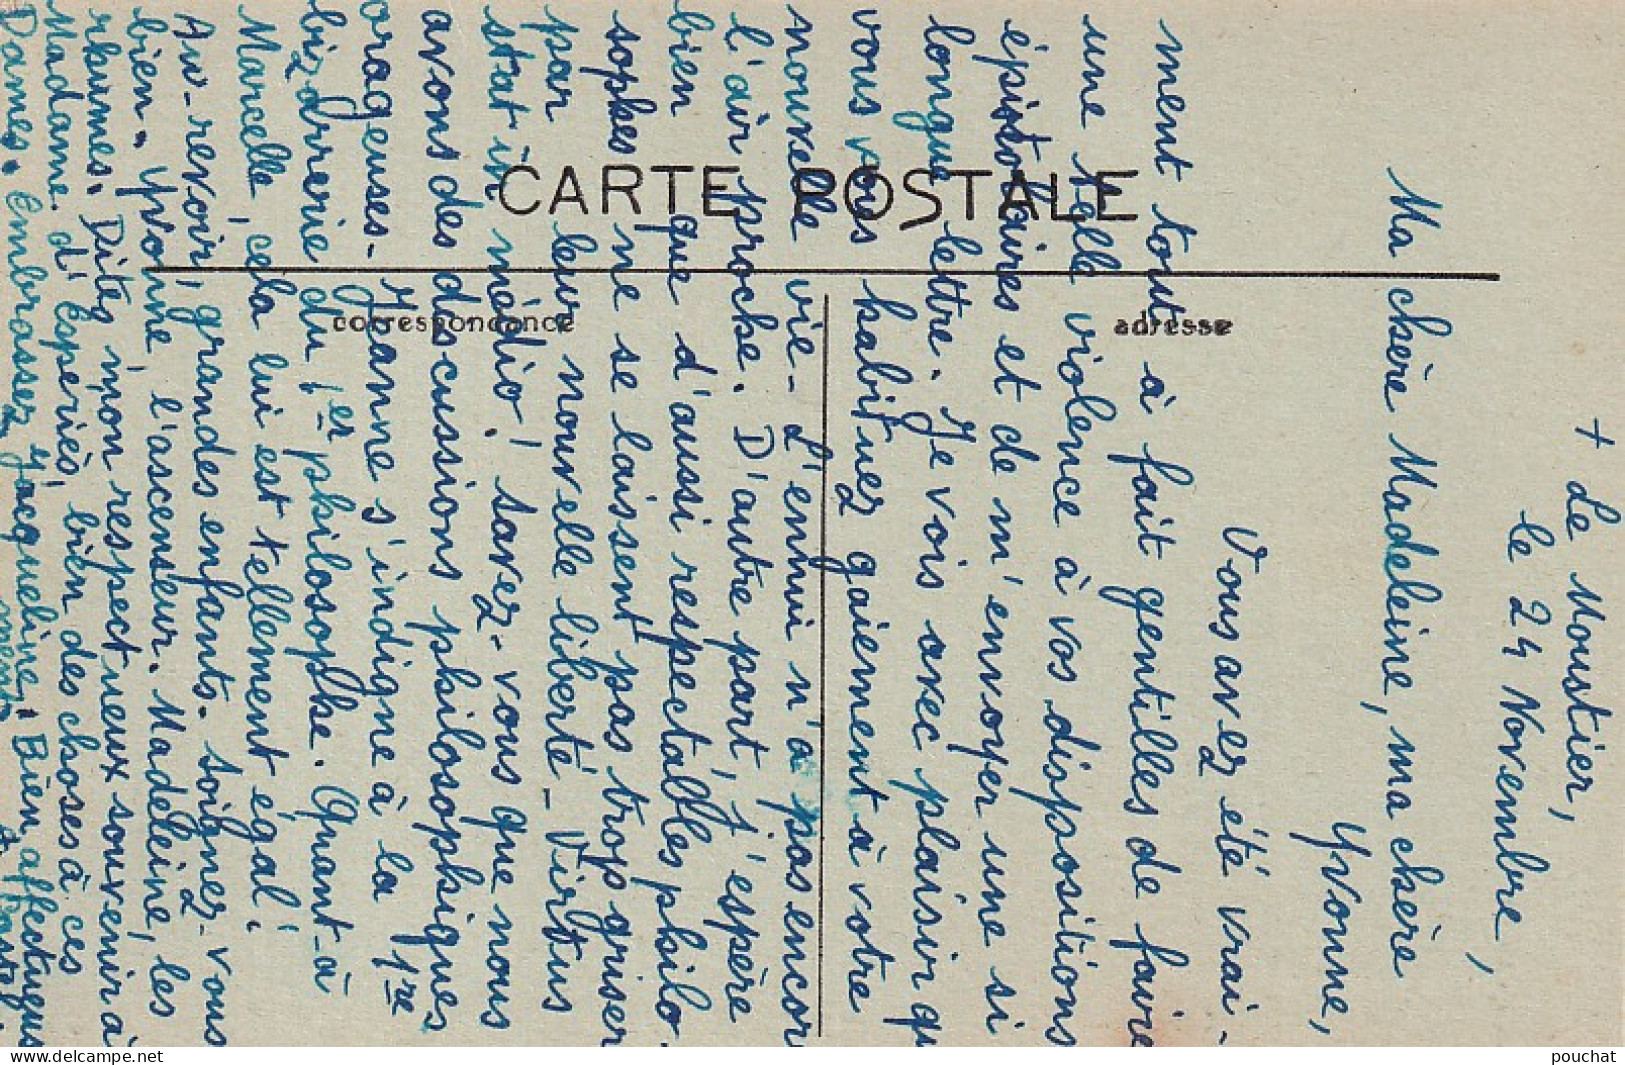 + Le Moustier,
le 24 Novembre,
Ma chère Madeleine, ma chère
Yvonne,
Vous avez été vrai-
ment tout à fait gentilles de faire
une telle violence à vos dispositions
épistolaires et de m'envoyer une si
longue lettre. Je vois avec plaisir qu
vous vous habituez gaiement à votre
nouvelle vie - L'ennui n'a pas encor
l'air proche. D'autre part, j'espère
bien que d'aussi respectables philo.
sophes ne se laissent pas trop griser
par leur nouvelle liberté - Virtus
stat in médio! savez-vous que nous
avons des discussions philosophiques
orageuses. Jeanne s'indigne à la 1re
bizarrerie du 1er philosophe. Quant-à
Marcelle, cela lui est tellement égal!
Au-revoir, grandes enfants. Soignez-vous
bien. Yvonne, l'ascenseur. Madeleine, les
rhumes. Dites mon respectueux souvenir à
Madame d'Esperiès, bien des choses à ces
Dames. Embrassez Jacqueline. Bien affectueus
ment
CARTE POSTALE
correspondance
adresse
delcampe.net
pouchat